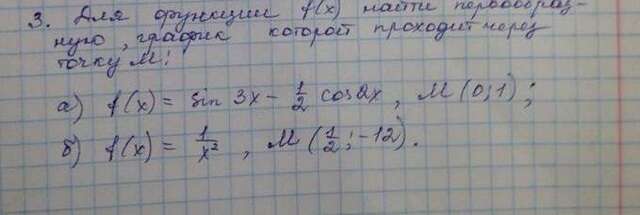 3. Для функции f(x) найти первообраз-
ную, график которой проходит через
точку М:
а) f(x) = sin 3x - 1/2 cos 2x, М (0;1);
б) f(x) = 1/x², М (1/2; -12).